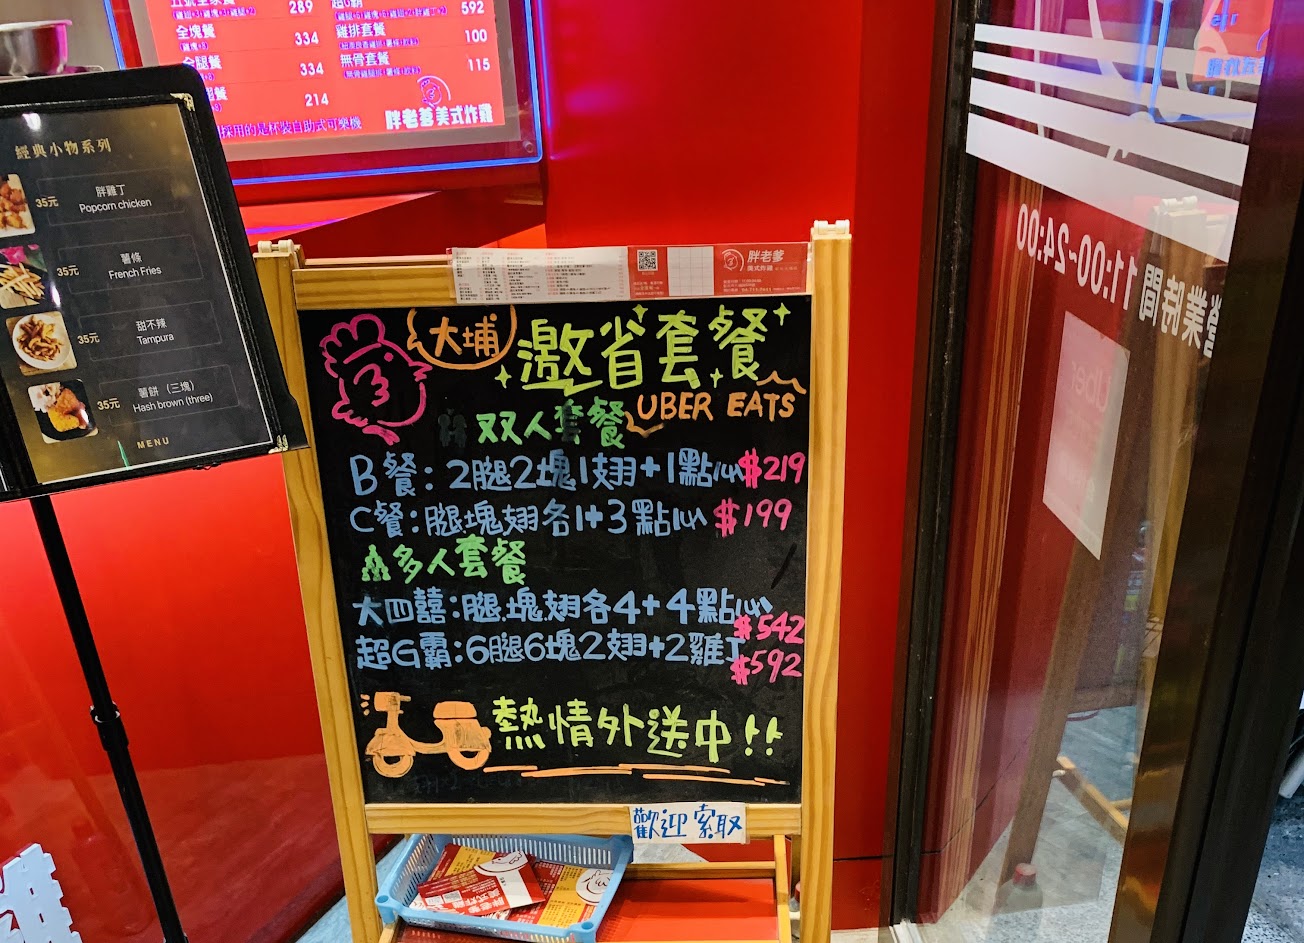 289
592
全塊餐
334
雞排餐
100
全腿餐
334
無骨套餐
115
214
採用的是杯裝自助式可樂機
胖老爹美式炸雞
經典小物系列
胖雞丁
35元
Popcorn chicken
薯條
35元
French Fries
甜不辣
35元
Tampura
薯餅 (三塊)
35元
Hash brown (three)
MENU
胖老爹
美式炸雞
大埔
邀省套餐
UBER EATS
双人套餐
B餐:2腿2塊1翅+1點心$219
C餐:腿.塊.翅各1+3點心$199
多人套餐
大四囍:腿.塊.翅各4+4點心$542
超G霸:6腿6塊2翅+2雞丁$592
熱情外送中!!
歡迎索取
營業時間 11:00~24:00
Uber